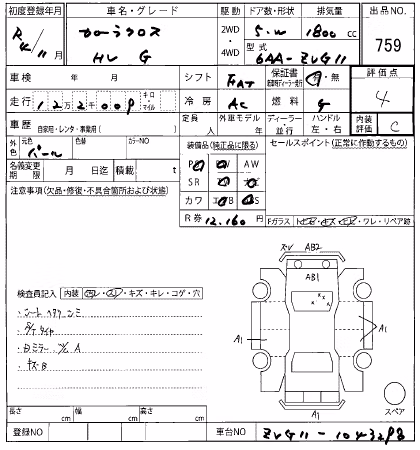 初度登録年月
R4/11月
車名・グレード
カローラクロス
HV G
駆動
2WD
4WD
ドア数・形状
5・W
排気量
1800cc
型式
6AA-ZVG11
出品NO.
759
車検 年 月
シフト
FAT
保証書
有・無
評価点
4
走行
122009
キロ
マイル
冷房
AC
燃料
G
車歴
自家用・レンタ・事業用( )
定員
人
外車モデル
年
ディーラー
・並行
ハンドル
左・右
内装
評価
C
外色
元色
パール
色替
カラーNO
名義変更
期限
月 日迄
積載
t
装備品(純正品に限る)
AW
SR
カワ
R券
12,160円
セールスポイント(正常に作動するもの)
Fガラス
ワレ・リペア跡
注意事項(欠品・修復・不具合箇所および状態)
X・V AB2
AB1
A1
A1
A1
スペア
検査員記入
内装
・キズ・キレ・コゲ・穴
長さ cm
幅 cm
高さ cm
登録NO
車台NO
ZVG11-